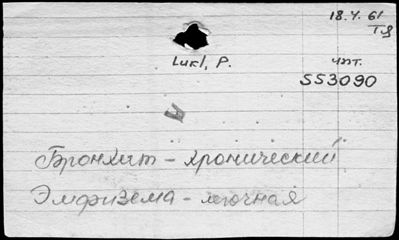 18.4.61
Тд
Lukl, P.
чит.
SS3090
Бронхит - хронический
Эмфизема - легочная